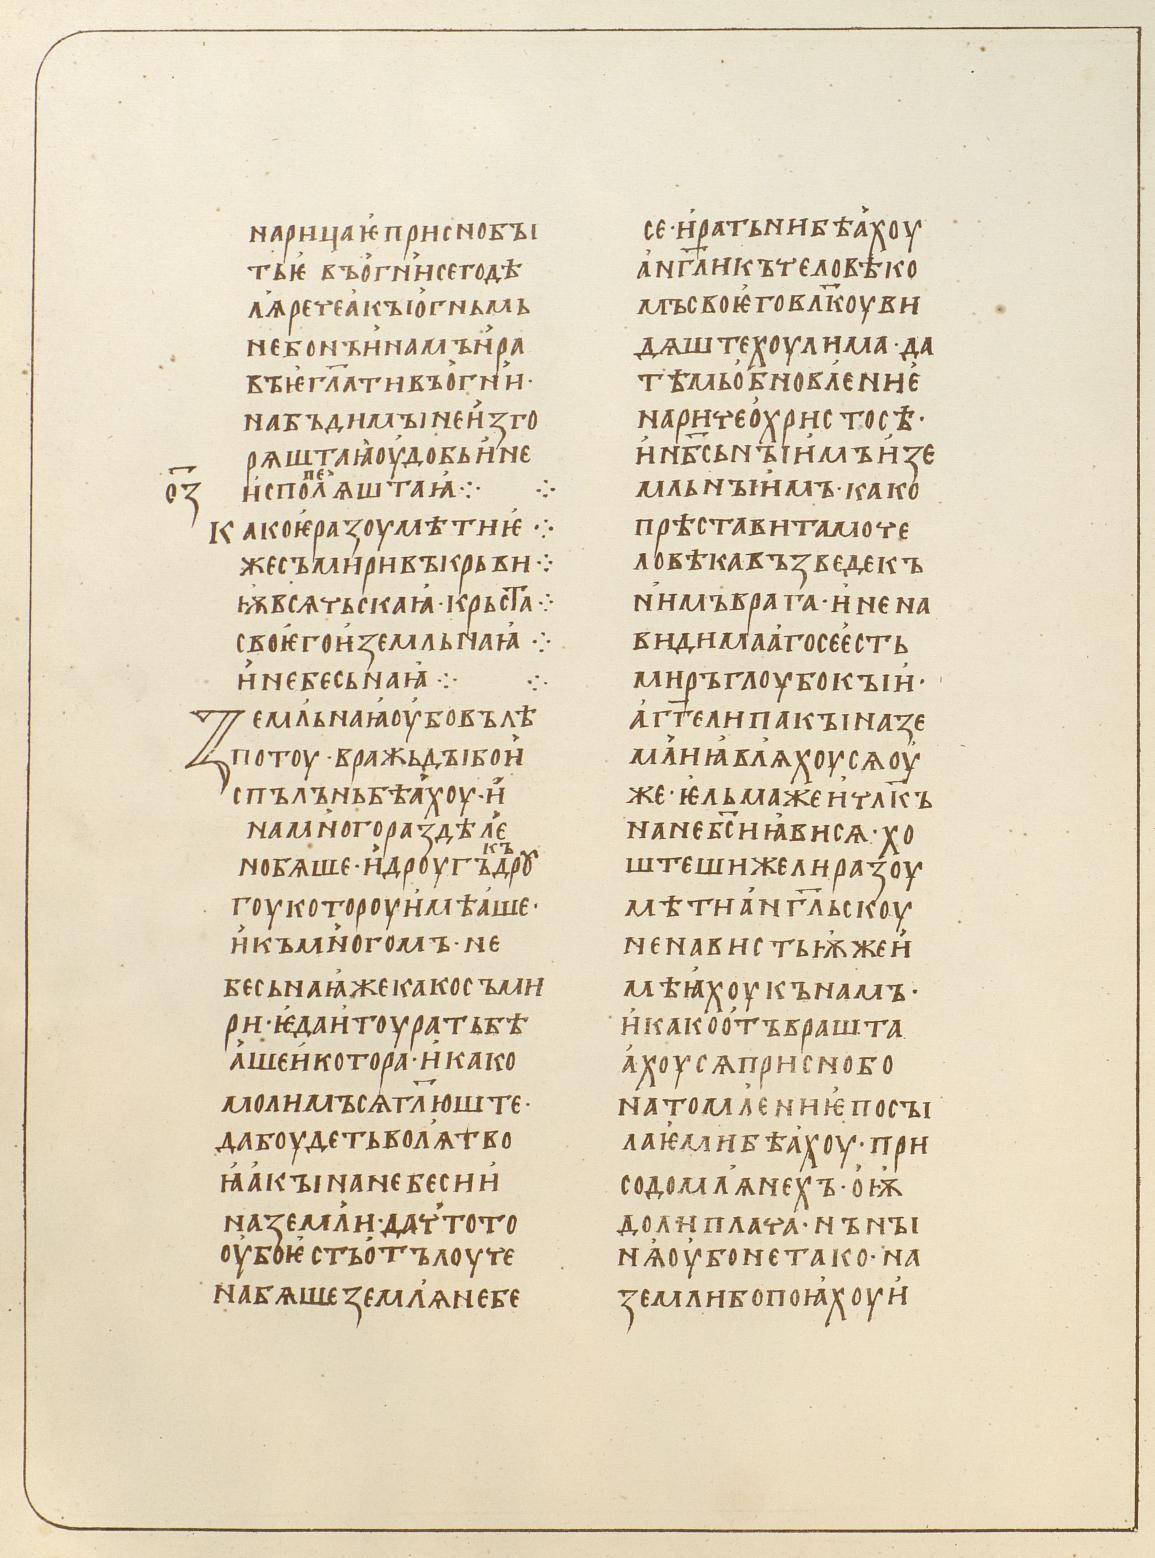 нарицаѥ присно бꙑ
тьѥ въ огни и сего дѣ
лѧ речеакꙑ огньмь
небонъ инамъ и ра
вьѥ г҃лати въ огни·
на бъдимꙑ неизго
рѧштаꙗ оудобь и не
исполпеѧштаꙗ ⁘ ⁘
о҃з
Како ѥ разоумѣтиѥ ⁘
же съмири въ крьви ⁘
ѭ всѧчьскаꙗ· крьс҃та ⁘
своѥго и земльнаꙗ ⁘
и небесьнаꙗ ⁘ ⁘
Земльнаꙗ оубо въ лѣ
потоу· вражьдꙑ бо и
спълънь бѣахоу· и
на много раздѣле
но бѧше· и дроугъ къ дрꙋ
гоу котороу имѣаше·
и къ многомъ· не
бесьнаꙗ же како съми
ри· ѥда и тоу рать бѣ
аше и котора· и како
молимъсѧ г҃люште·
да боудеть волꙗ тво
ꙗ акꙑ на небеси и
на земли· да чьто то
оубо ѥсть отълоуче
на бѧше землꙗ небе
се· и ратьни бѣахоу
ан҃гли къ человѣко
мъ своѥго вл҃коу ви
дѧште хоулима· да
тѣмь обновлениѥ
нарите о христосѣ·
и нб҃сьнꙑимъ и зе
мльнꙑимъ· како
прѣстави тамо че
ловѣка възведе къ
нимъ врага· и нена
видимааго се есть
миръ глоубокꙑи·
аг҃гели пакꙑ на зе
мли ꙗвлꙗхоусѧ оу
же· ѥльма же и чл҃къ
на неб҃си ꙗвисѧ· хо
штеши же ли разоу
мѣти ан҃гльскоу
ненависть ѭже и
мѣꙗхоу къ намъ·
и како отъврашта
ахоусѧ присно бо
на томлениѥ посꙑ
лаѥми бѣахоу· при
содомлꙗнехъ· о ѭ
доли плача· нъ нꙑ
нѧ оубо не тако· на
земли бо поꙗхоу и